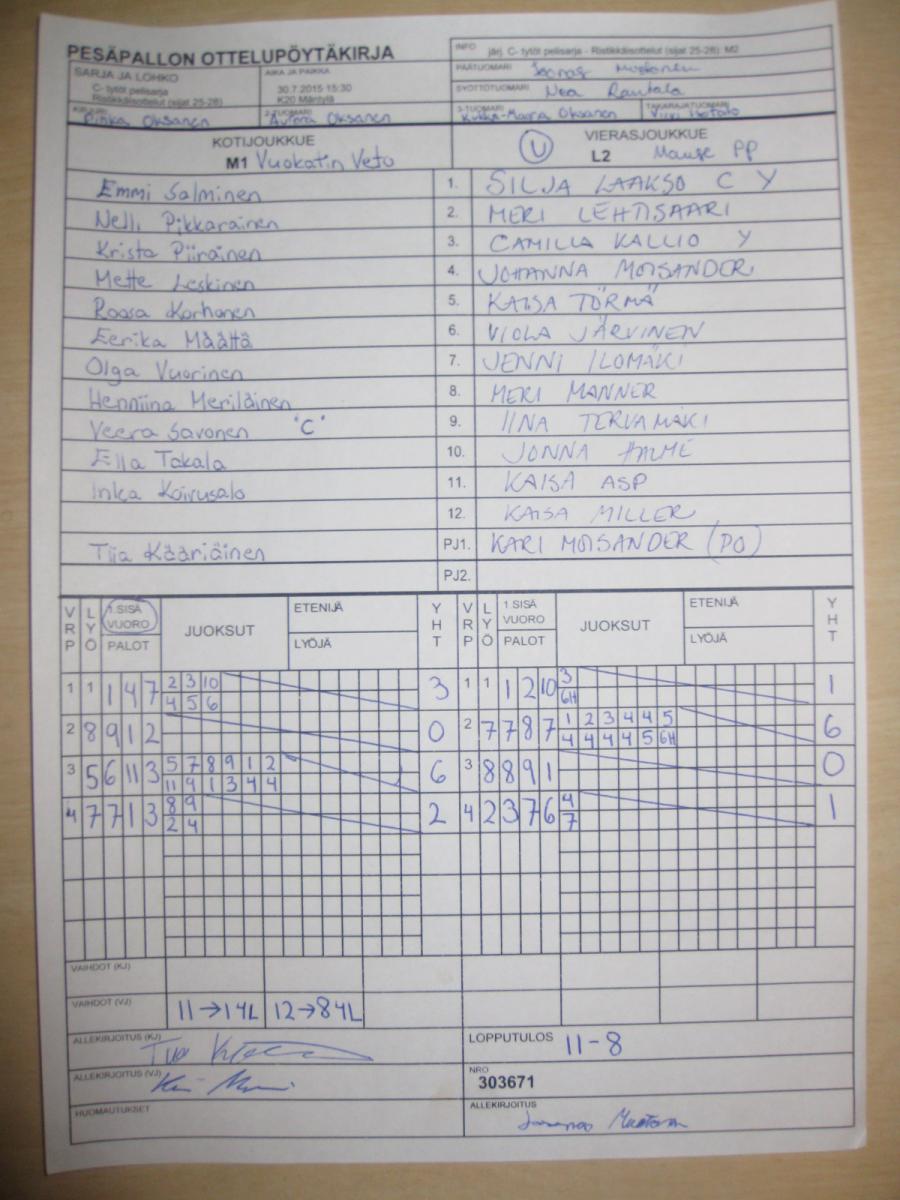 PESÄPALLON OTTELUPÖYTÄKIRJA
INFO järj. C- tytöt pelisarja - Ristikkäisottelut (sijat 25-28): M2
SARJA JA LOHKO
C- tytöt pelisarja
Ristikkäisottelut (sijat 25-28)
AIKA JA PAIKKA
30.7.2015 15:30
K20 Mäntylä
PÄÄTUOMARI Joonas
SYÖTTÖTUOMARI Nea Rautala
KIRJURI Pinka Oksanen
2-TUOMARI Aurora Oksanen
3-TUOMARI Kukka-Maaria Oksanen
TAKARAJATUOMARI Viivi
KOTIJOUKKUE
M1 Vuokatin Veto
U VIERASJOUKKUE
L2 Manse PP
Emmi Salminen 1. SILJA LAAKSO C Y
Nelli Pikkarainen 2. MERI LEHTISAARI
Krista Piirainen 3. CAMILLA KALLIO Y
Mette Leskinen 4. JOHANNA MOISANDER
Roosa Korhonen 5. KAISA TÖRMÄ
Eerika Määttä 6. VIOLA JÄRVINEN
Olga Vuorinen 7. JENNI ILOMÄKI
Henniina Meriläinen 8. MERI MANNER
Veera Savonen "C" 9. IINA TERVAMÄKI
Ella Takala 10. JONNA HALME
Inka Koivusalo 11. KAISA ASP
12. KAISA MILLER
Tiia Kääriäinen PJ1. KARI MOISANDER (PO)
PJ2.
VRP LYÖ 1.SISÄ VUORO PALOT JUOKSUT ETENIJÄ LYÖJÄ YHT VRP LYÖ 1.SISÄ VUORO PALOT JUOKSUT ETENIJÄ LYÖJÄ YHT
1 1 1 4 7 2 3 10 3 1 1 1 2 10 3 1
4 5 6 6H
2 8 9 1 2 0 2 7 7 8 7 1 2 3 4 4 5 6
4 4 4 4 5 6H
3 5 6 11 3 5 7 8 9 1 2 6 3 8 8 9 1 0
11 9 1 3 4 4
4 7 7 1 3 8 9 2 4 2 3 7 6 4 1
2 4 7
VAIHDOT (KJ)
VAIHDOT (VJ) 11→14L 12→84L
ALLEKIRJOITUS (KJ) Tiia
LOPPUTULOS 11-8
ALLEKIRJOITUS (VJ)
NRO
303671
HUOMAUTUKSET
ALLEKIRJOITUS